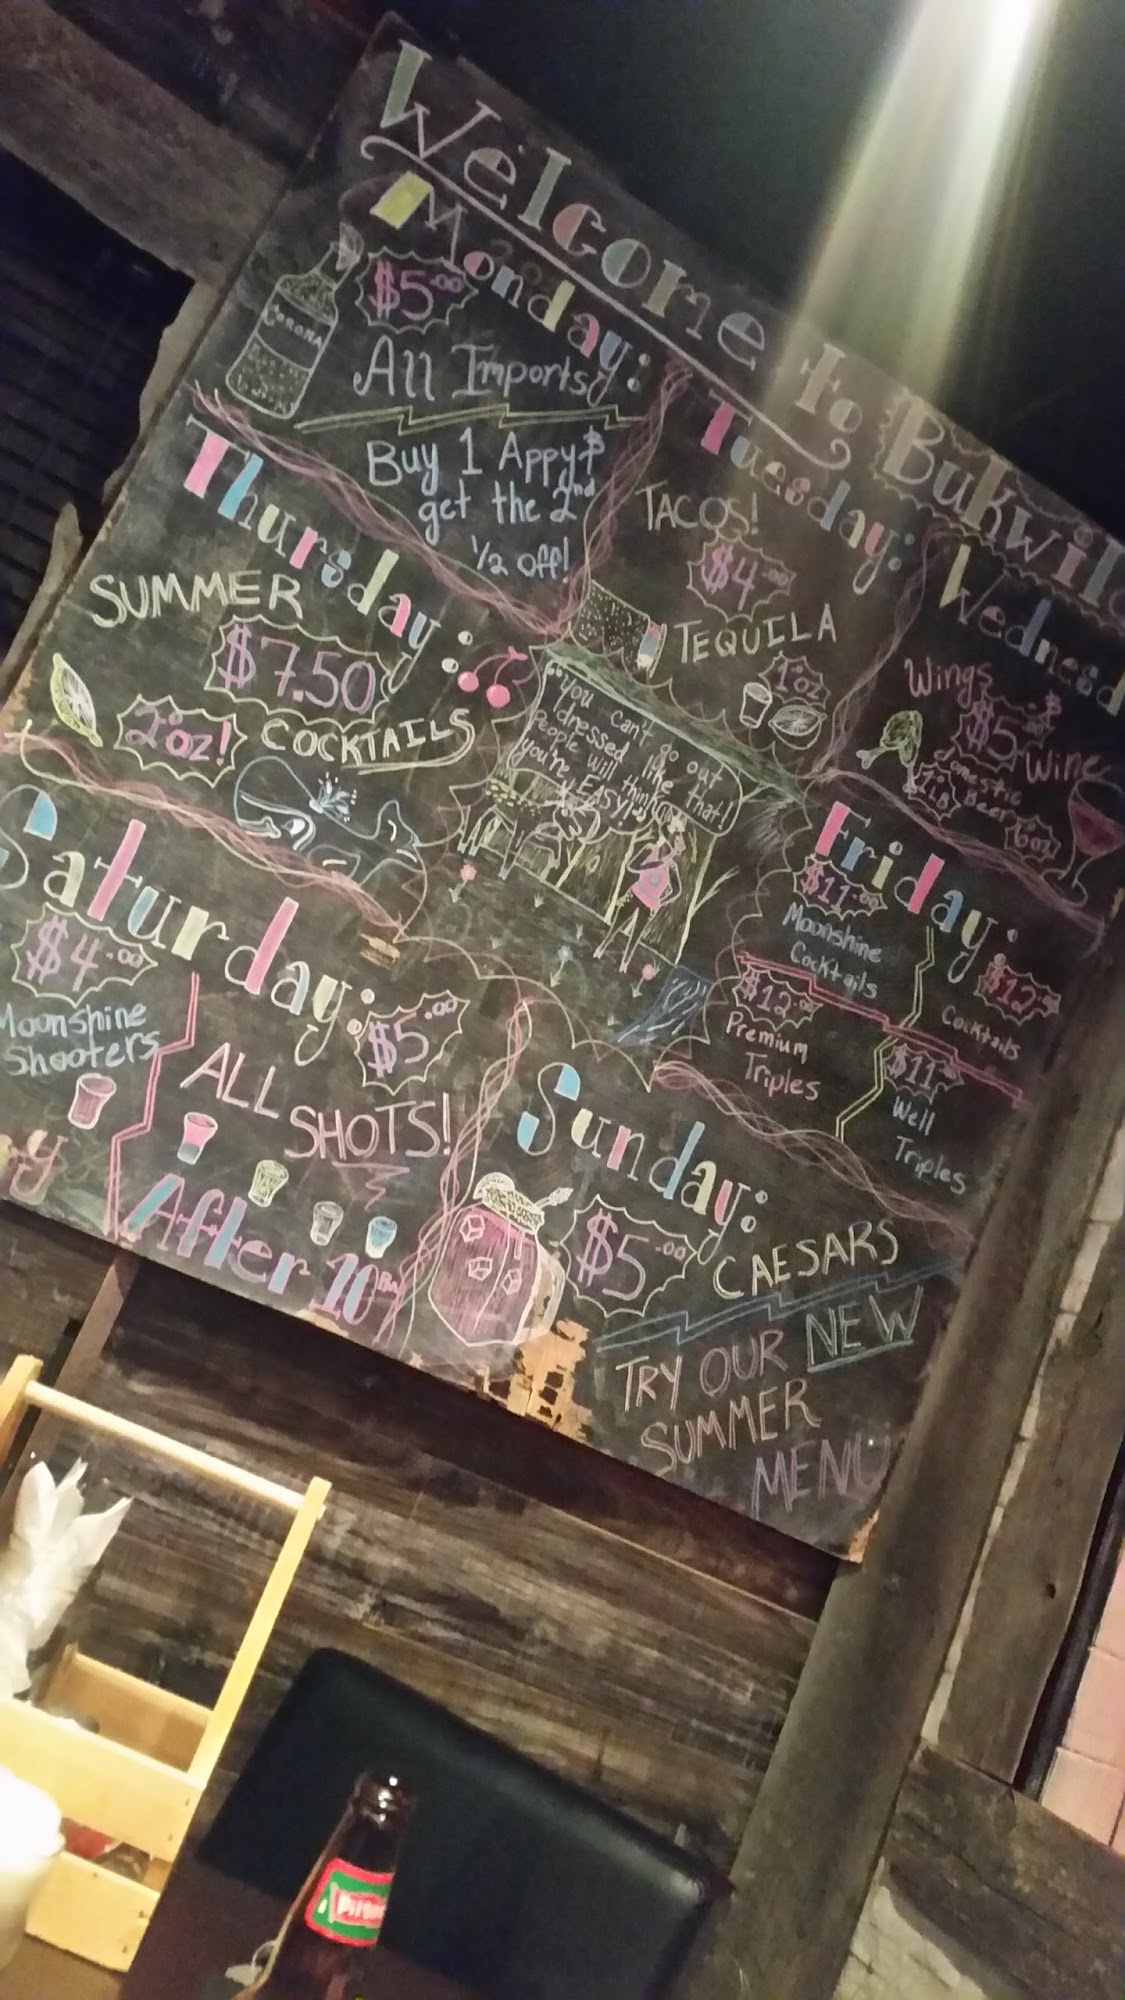 Welcome to Bukwil
Monday:
$5.00
CORONA
All Imports
Buy 1 Appy &
get the 2nd
1/2 off!
Tuesday:
TACOS!
$4.00
TEQUILA
1oz
Wednesd
Wings
$5
domestic
Beer
Wine
1LB
6oz
Thursday:
SUMMER
$7.50
2oz!
COCKTAILS
"You can't go out
dressed like that!
People will think
you're EASY!"
Friday:
$11.00
Moonshine
Cocktails
$12.00
Cocktails
$12.00
Premium
Triples
$11
Well
Triples
Saturday:
$4.00
Moonshine
Shooters
$5.00
ALL
SHOTS!
After 10pm
Sunday:
$5.00
CAESARS
TRY OUR NEW
SUMMER
MENU